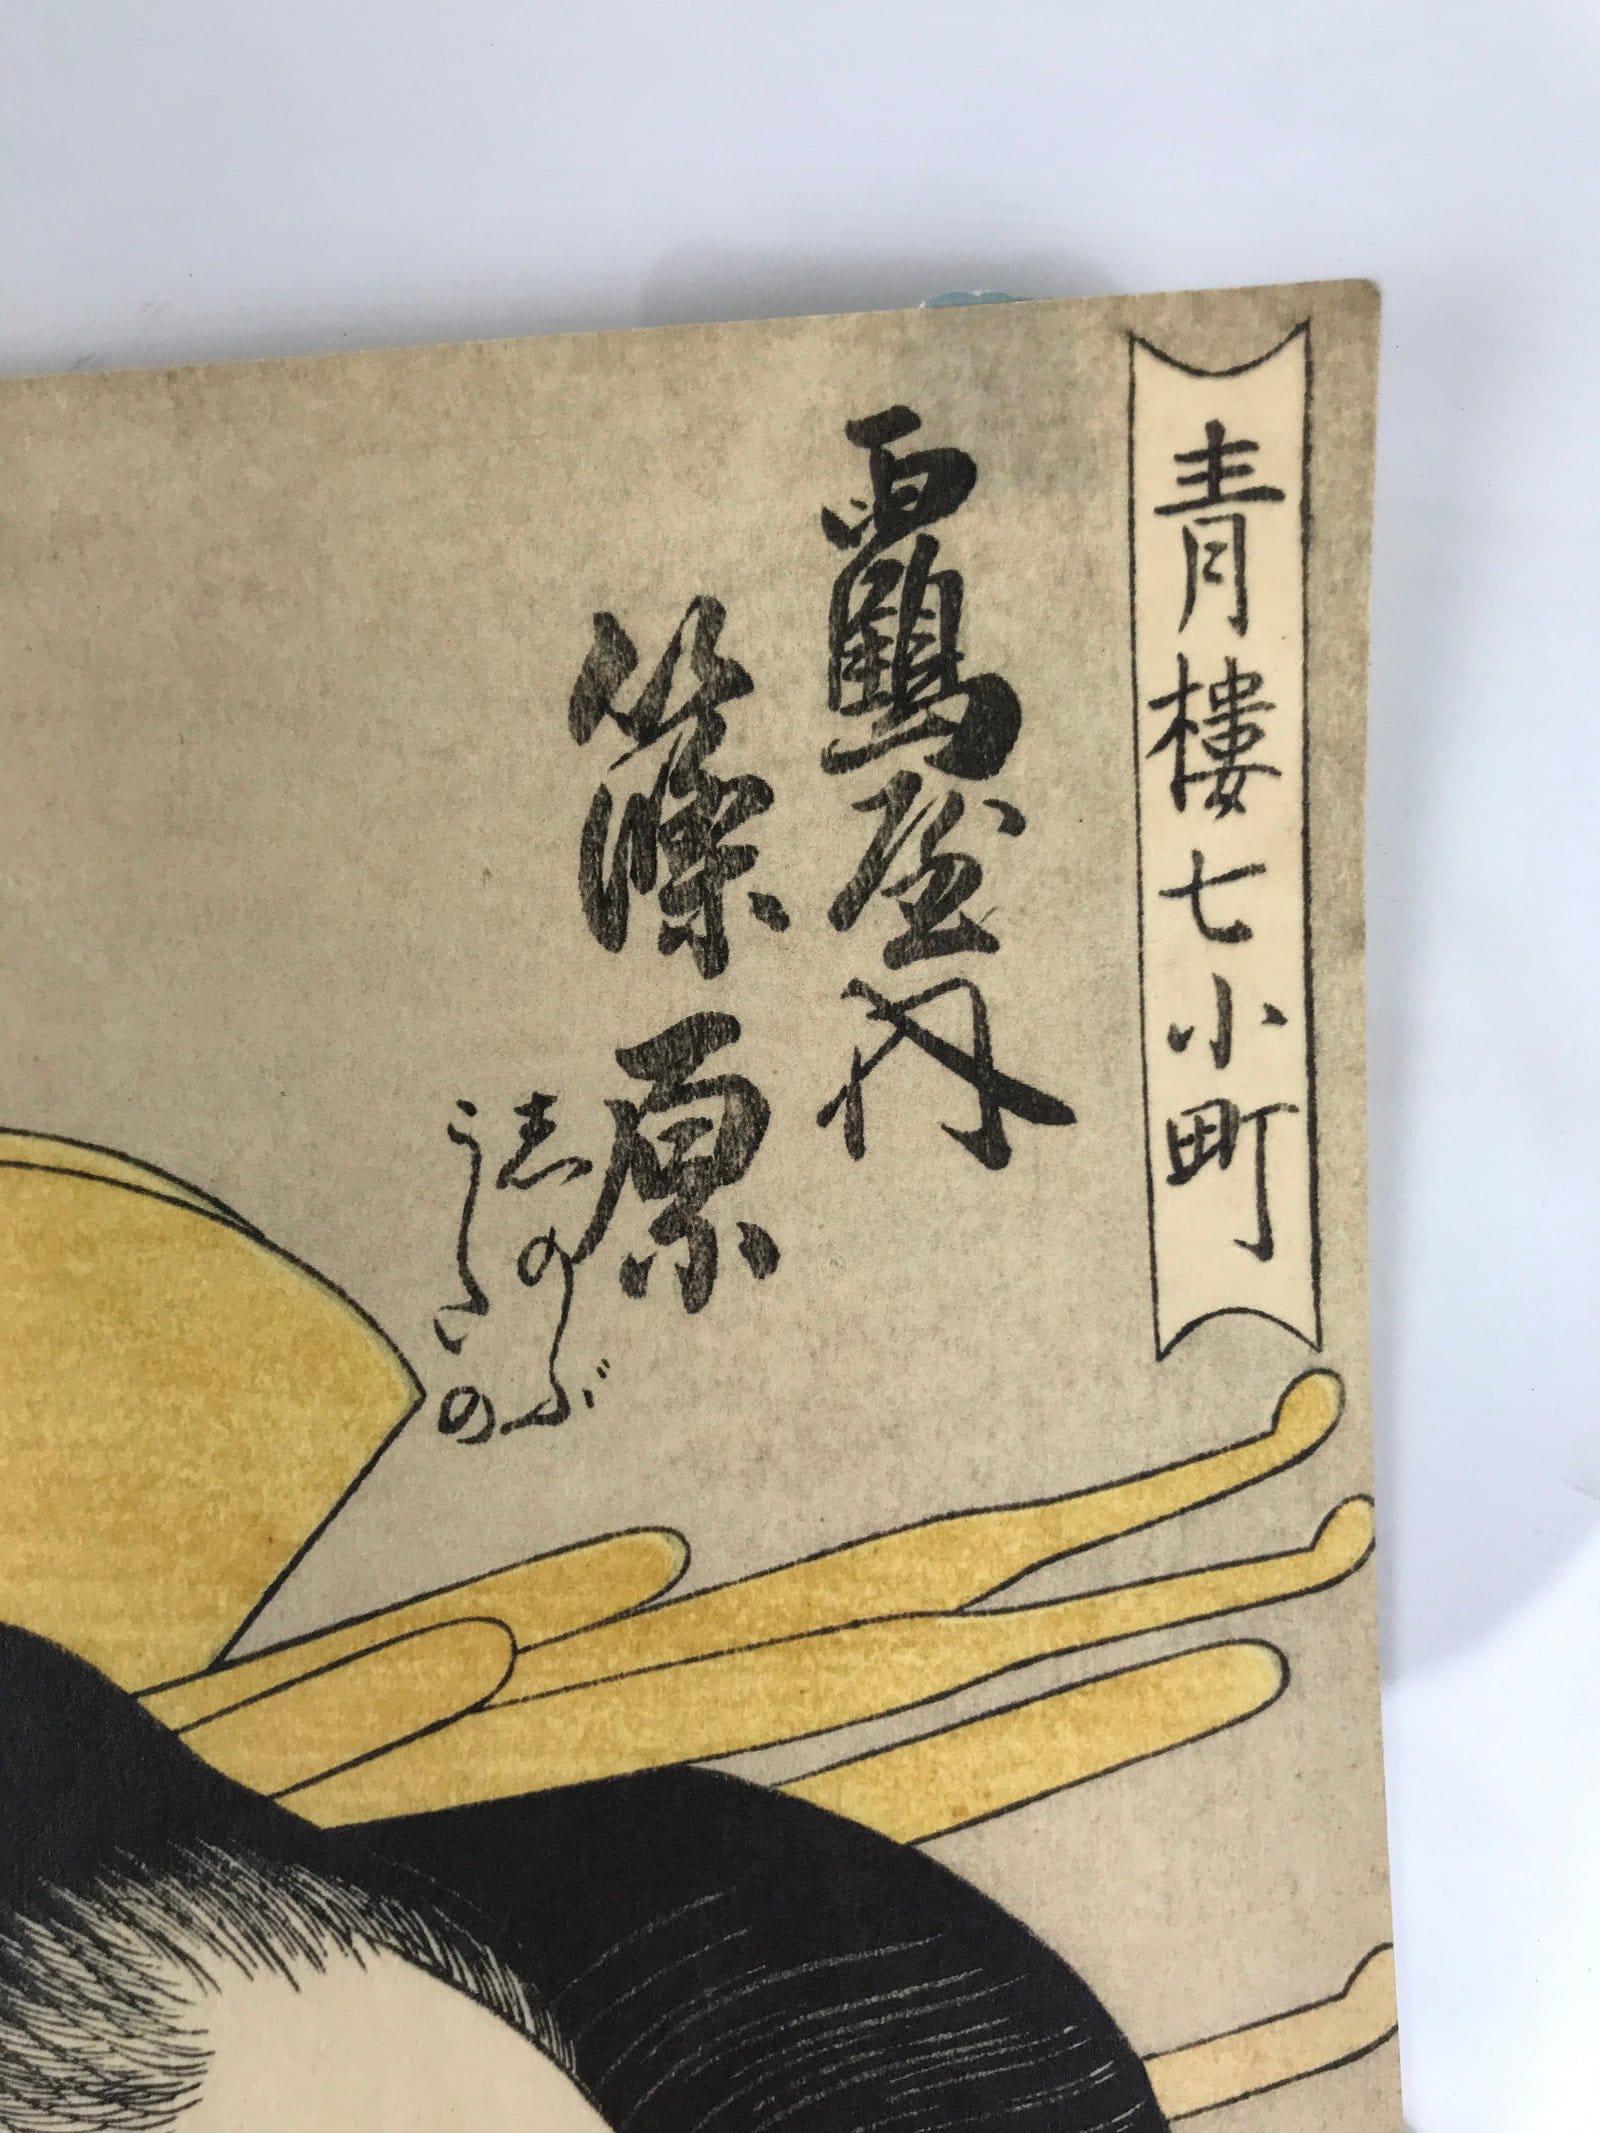 青樓七小町
靏屋内
篠原
志のぶ
うたの